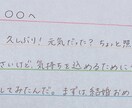 ○○へ
久しぶり!元気だった?ちょっと照
さいけど、気持ちを込めるために
してみたんだ。まずは結婚おめ